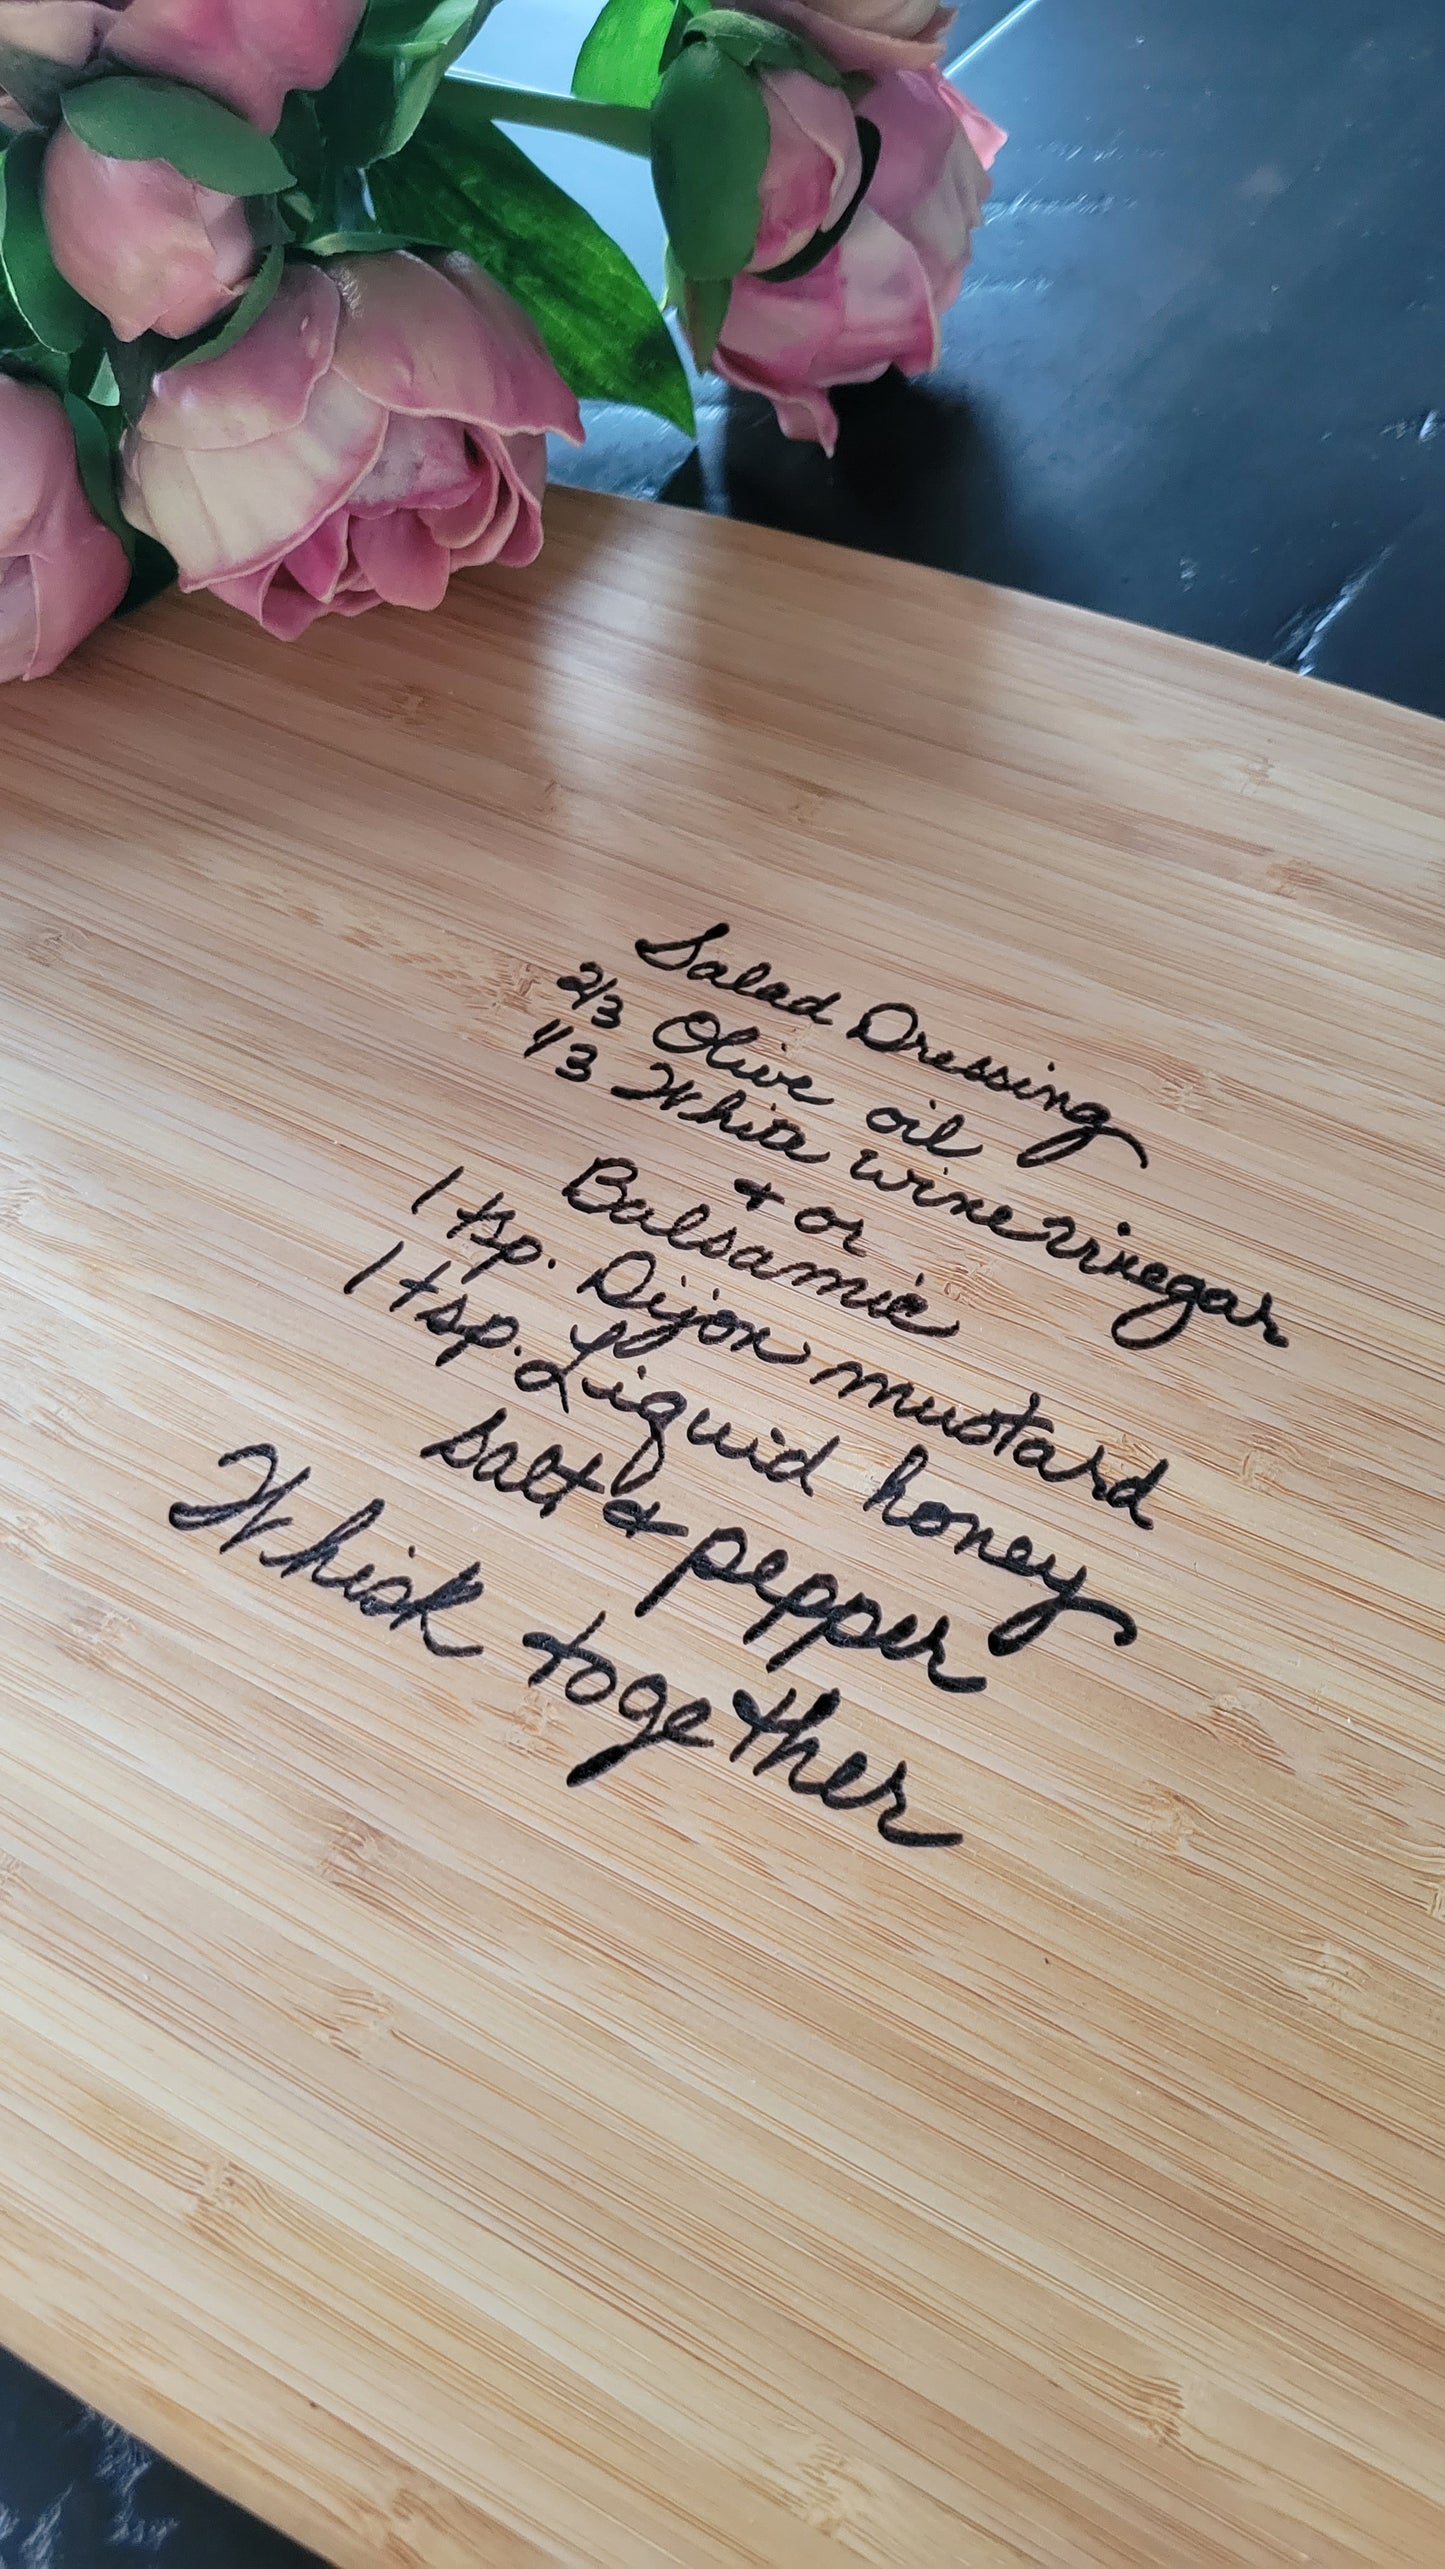 Salad Dressing
2/3 Olive oil
1/3 White wine vinegar
& or
Balsamic
1 tsp. Dijon mustard
1 tsp. Liquid honey
salt & pepper
Whisk together